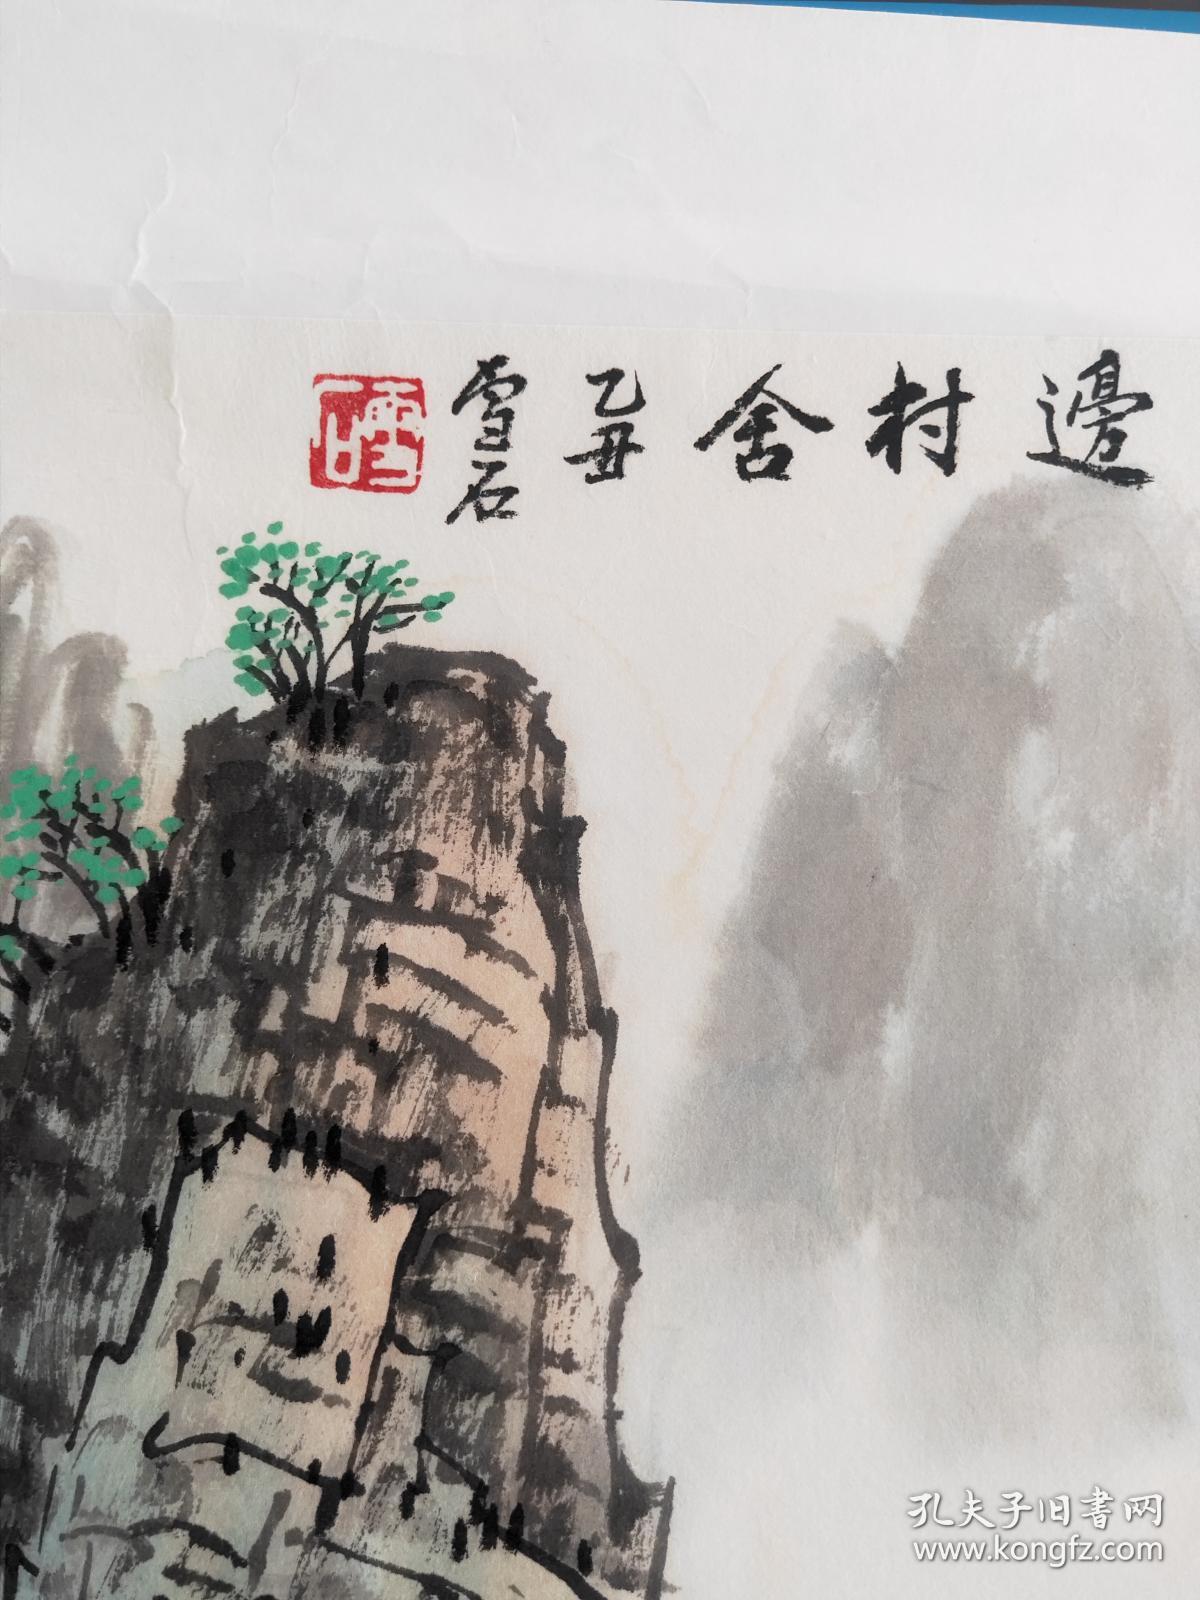 邊村舍
乙丑
雪石
雪石
孔夫子旧書网
www.kongfz.com